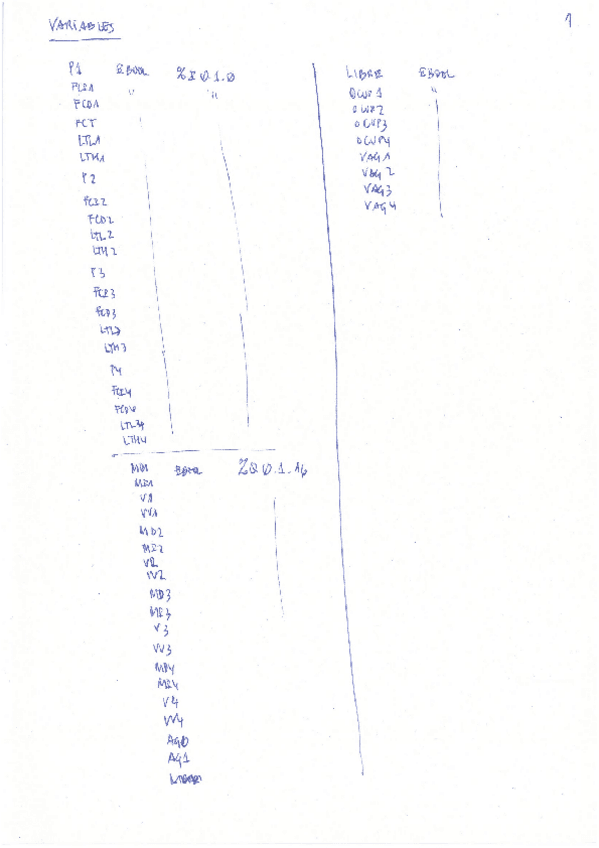 VARIABLES
1
P1 EBOOL %I0.1.0
FCI1 " "
FCD1
FCT
LTL1
LTH1
P2
FCI2
FCD2
LTL2
LTH2
P3
FCI3
FCD3
LTL3
LTH3
P4
FCI4
FCD4
LTL4
LTH4
MD1 EBOOL %Q0.1.16
MI1
V1
VV1
MD2
MI2
V2
VV2
MD3
MI3
V3
VV3
MD4
MI4
V4
VV4
AG0
AG1
LIBRE EBOOL
OCUP1 "
OCUP2
OCUP3
OCUP4
VAG1
VAG2
VAG3
VAG4